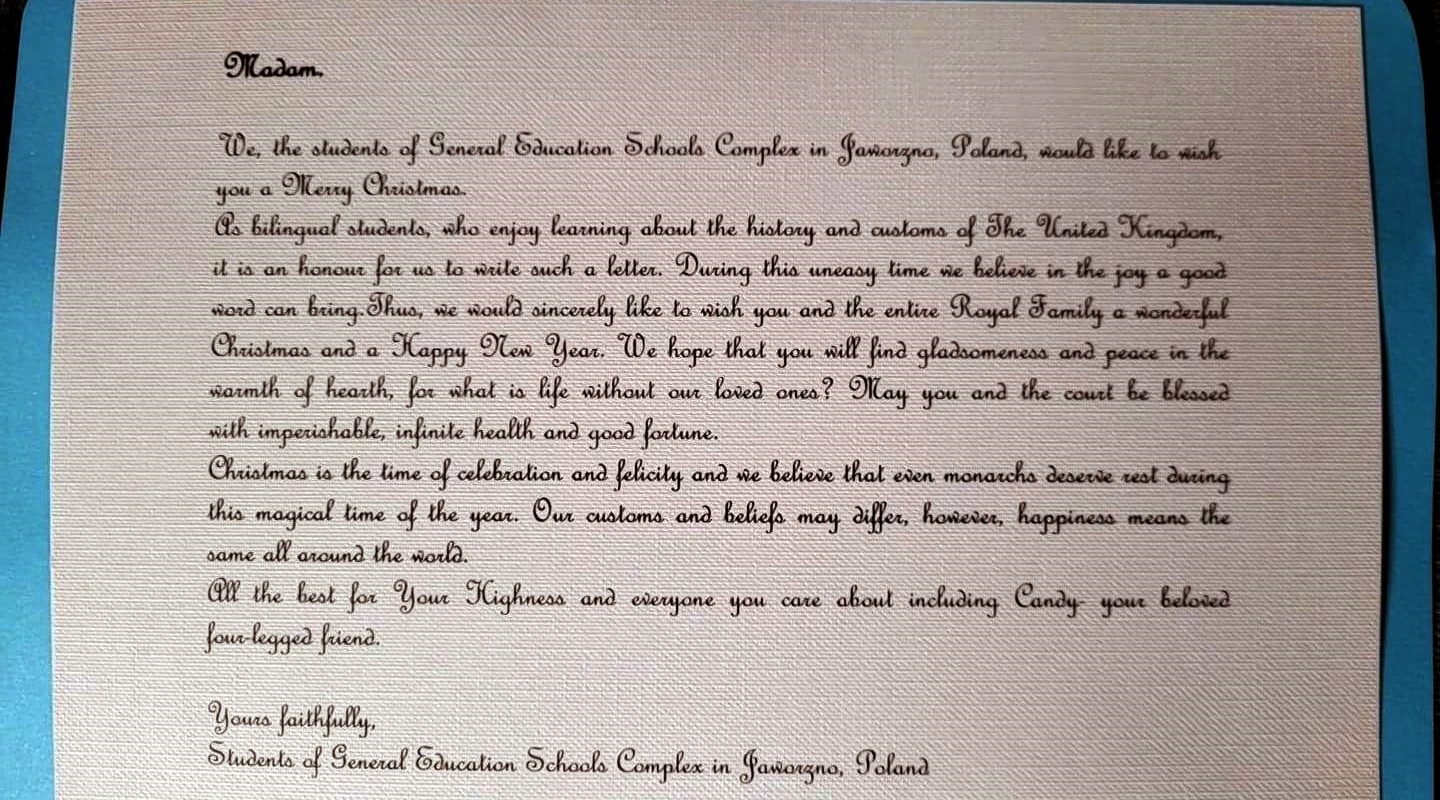 Madam,
We, the students of General Education Schools Complex in Jaworzno, Poland, would like to wish
you a Merry Christmas.
As bilingual students, who enjoy learning about the history and customs of The United Kingdom,
it is an honour for us to write such a letter. During this uneasy time we believe in the joy a good
word can bring.Thus, we would sincerely like to wish you and the entire Royal Family a wonderful
Christmas and a Happy New Year. We hope that you will find gladsomeness and peace in the
warmth of hearth, for what is life without our loved ones? May you and the court be blessed
with imperishable, infinite health and good fortune.
Christmas is the time of celebration and felicity and we believe that even monarchs deserve rest during
this magical time of the year. Our customs and beliefs may differ, however, happiness means the
same all around the world.
All the best for Your Highness and everyone you care about including Candy- your beloved
four-legged friend.
Yours faithfully,
Students of General Education Schools Complex in Jaworzno, Poland